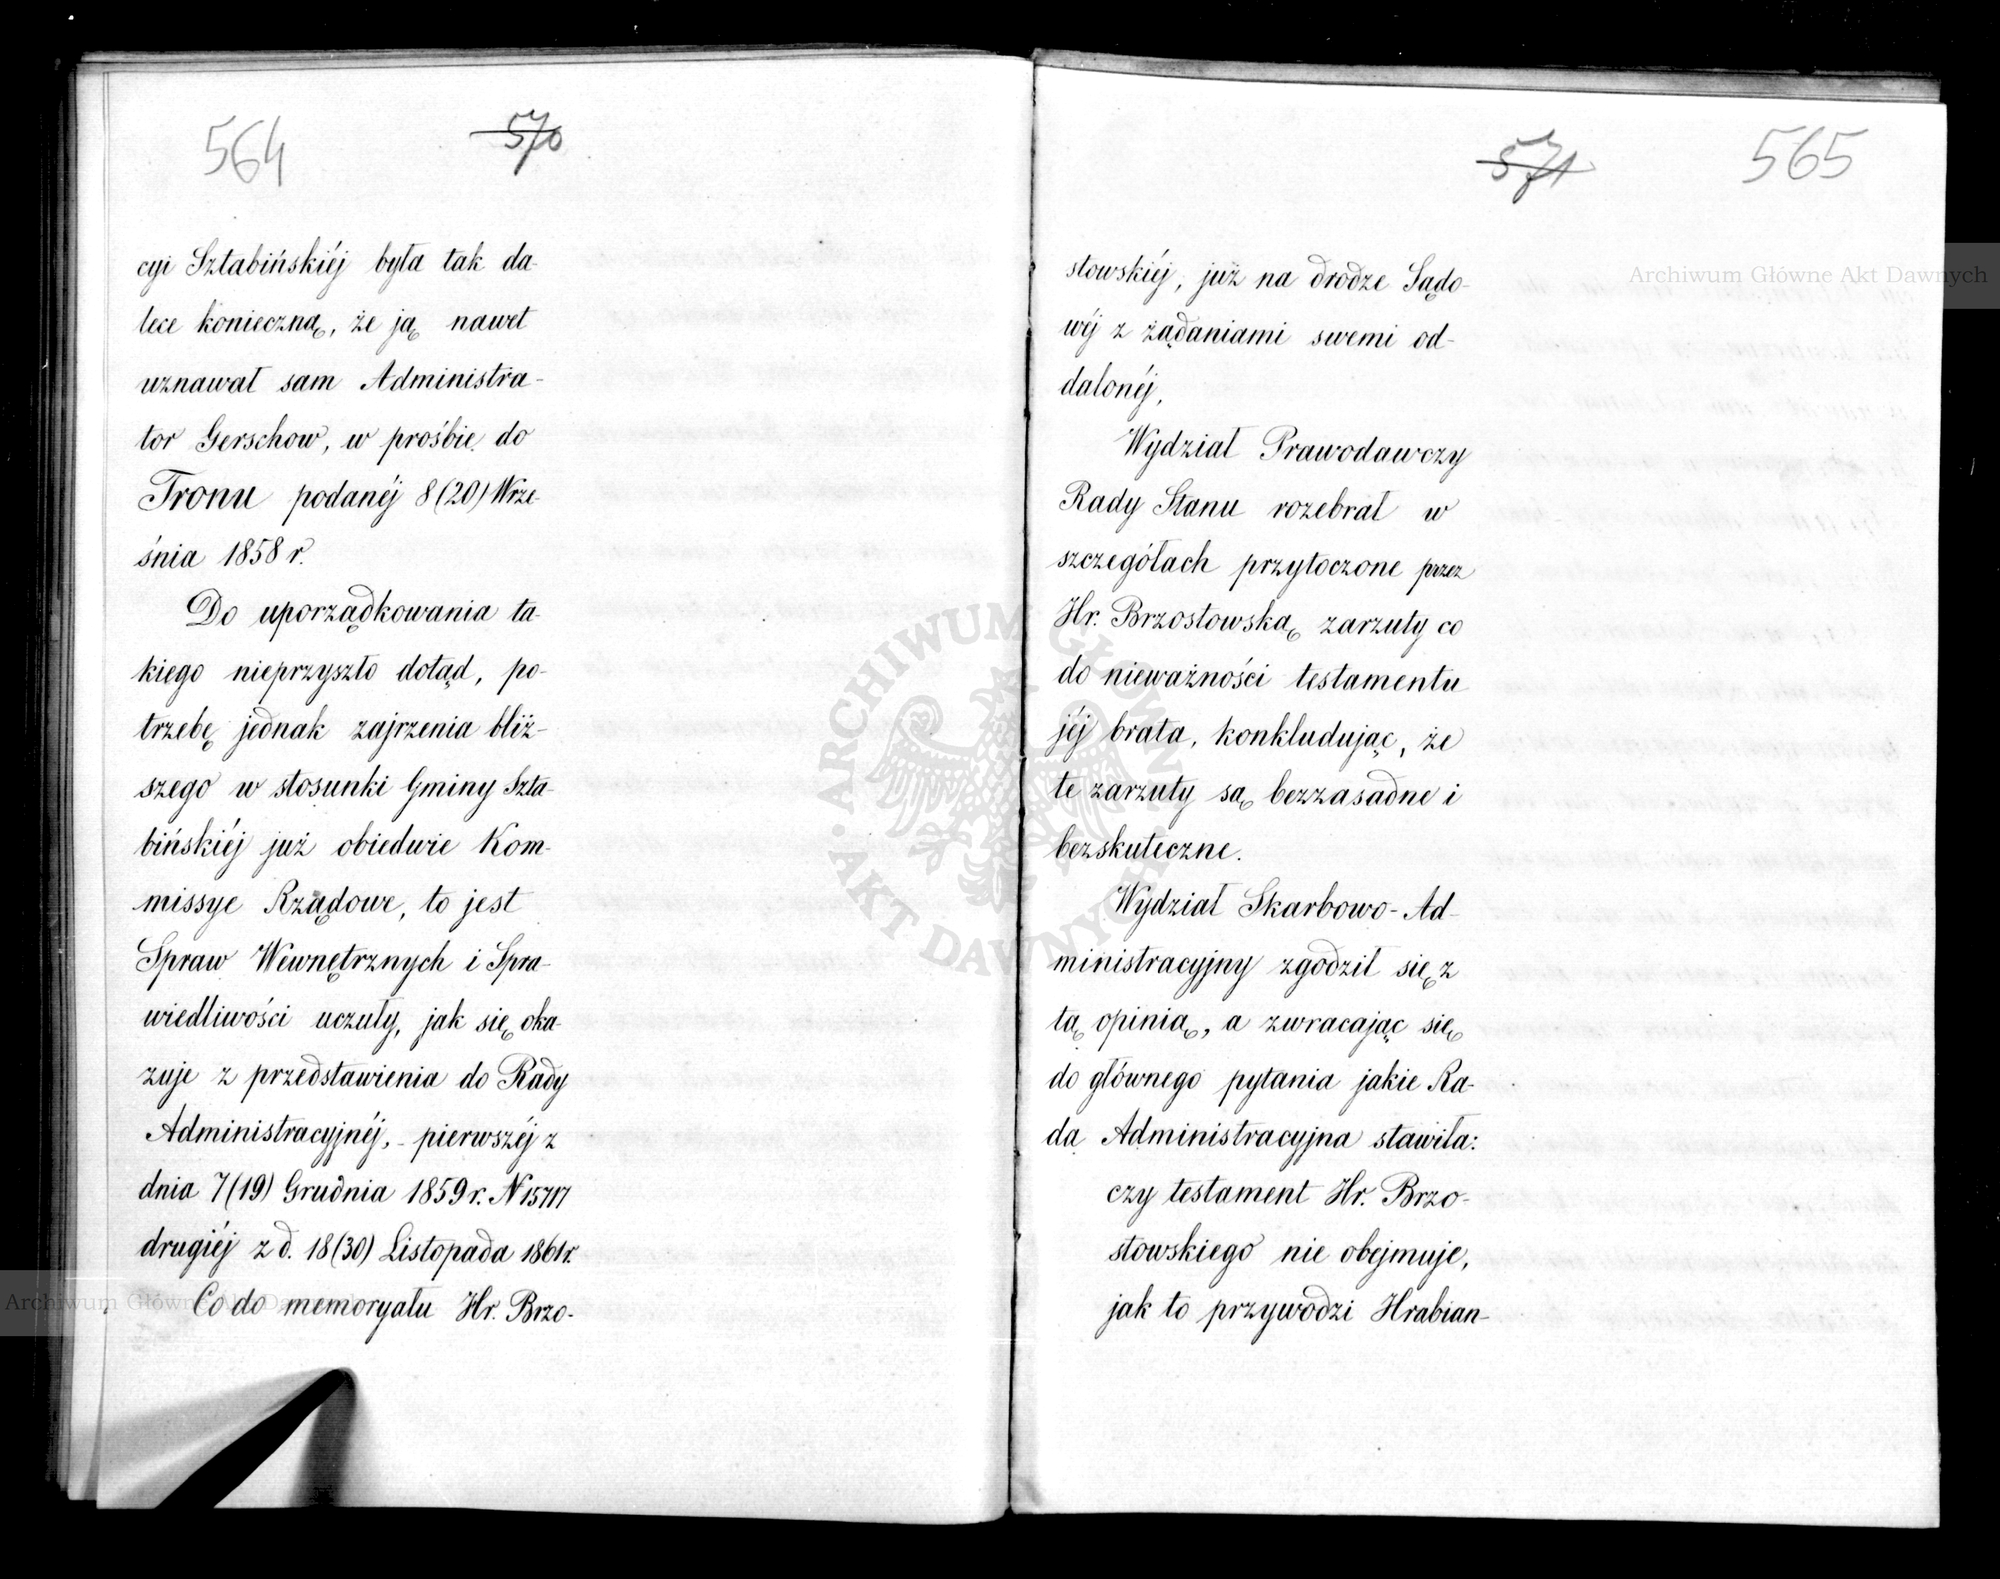 564
570
cyi Sztabińskiéj była tak da-
lece konieczną, że ją nawet
uznawał sam Administra-
tor Gerschow, w prośbie do
Tronu podanéj 8(20) Wrze-
śnia 1858 r.
Do uporządkowania ta-
kiego nieprzyszło dotąd, po-
trzebę jednak zajrzenia bliż-
szego w stosunki Gminy Szta-
bińskiéj już obiedwie Kom-
missye Rządowe, to jest
Spraw Wewnętrznych i Spra-
wiedliwości uczuły, jak się oka-
zuje z przedstawienia do Rady
Administracyjnéj, - pierwszéj z
dnia 7(19) Grudnia 1859 r. N 15717
drugiéj z d. 18(30) Listopada 1861 r.
Co do memoryału Hr. Brzo-
571
565
stowskiéj, już na drodze Sądo-
wéj z żądaniami swemi od-
dalonéj,
Wydział Prawodawczy
Rady Stanu rozebrał w
szczegółach przytoczone przez
Hr. Brzostowską zarzuty co
do nieważności testamentu
jéj brata, konkludując, że
te zarzuty są bezzasadne i
bezskuteczne.
Wydział Skarbowo-Ad-
ministracyjny zgodził się z
tą opinią, a zwracając się
do głównego pytania jakie Ra-
da Administracyjna stawiła:
czy testament Hr. Brzo-
stowskiego nie obejmuje,
jak to przywodzi Hrabian-
Archiwum Główne Akt Dawnych
Archiwum Główne Akt Dawnych
ARCHIWUM GŁÓWNE AKT DAWNYCH